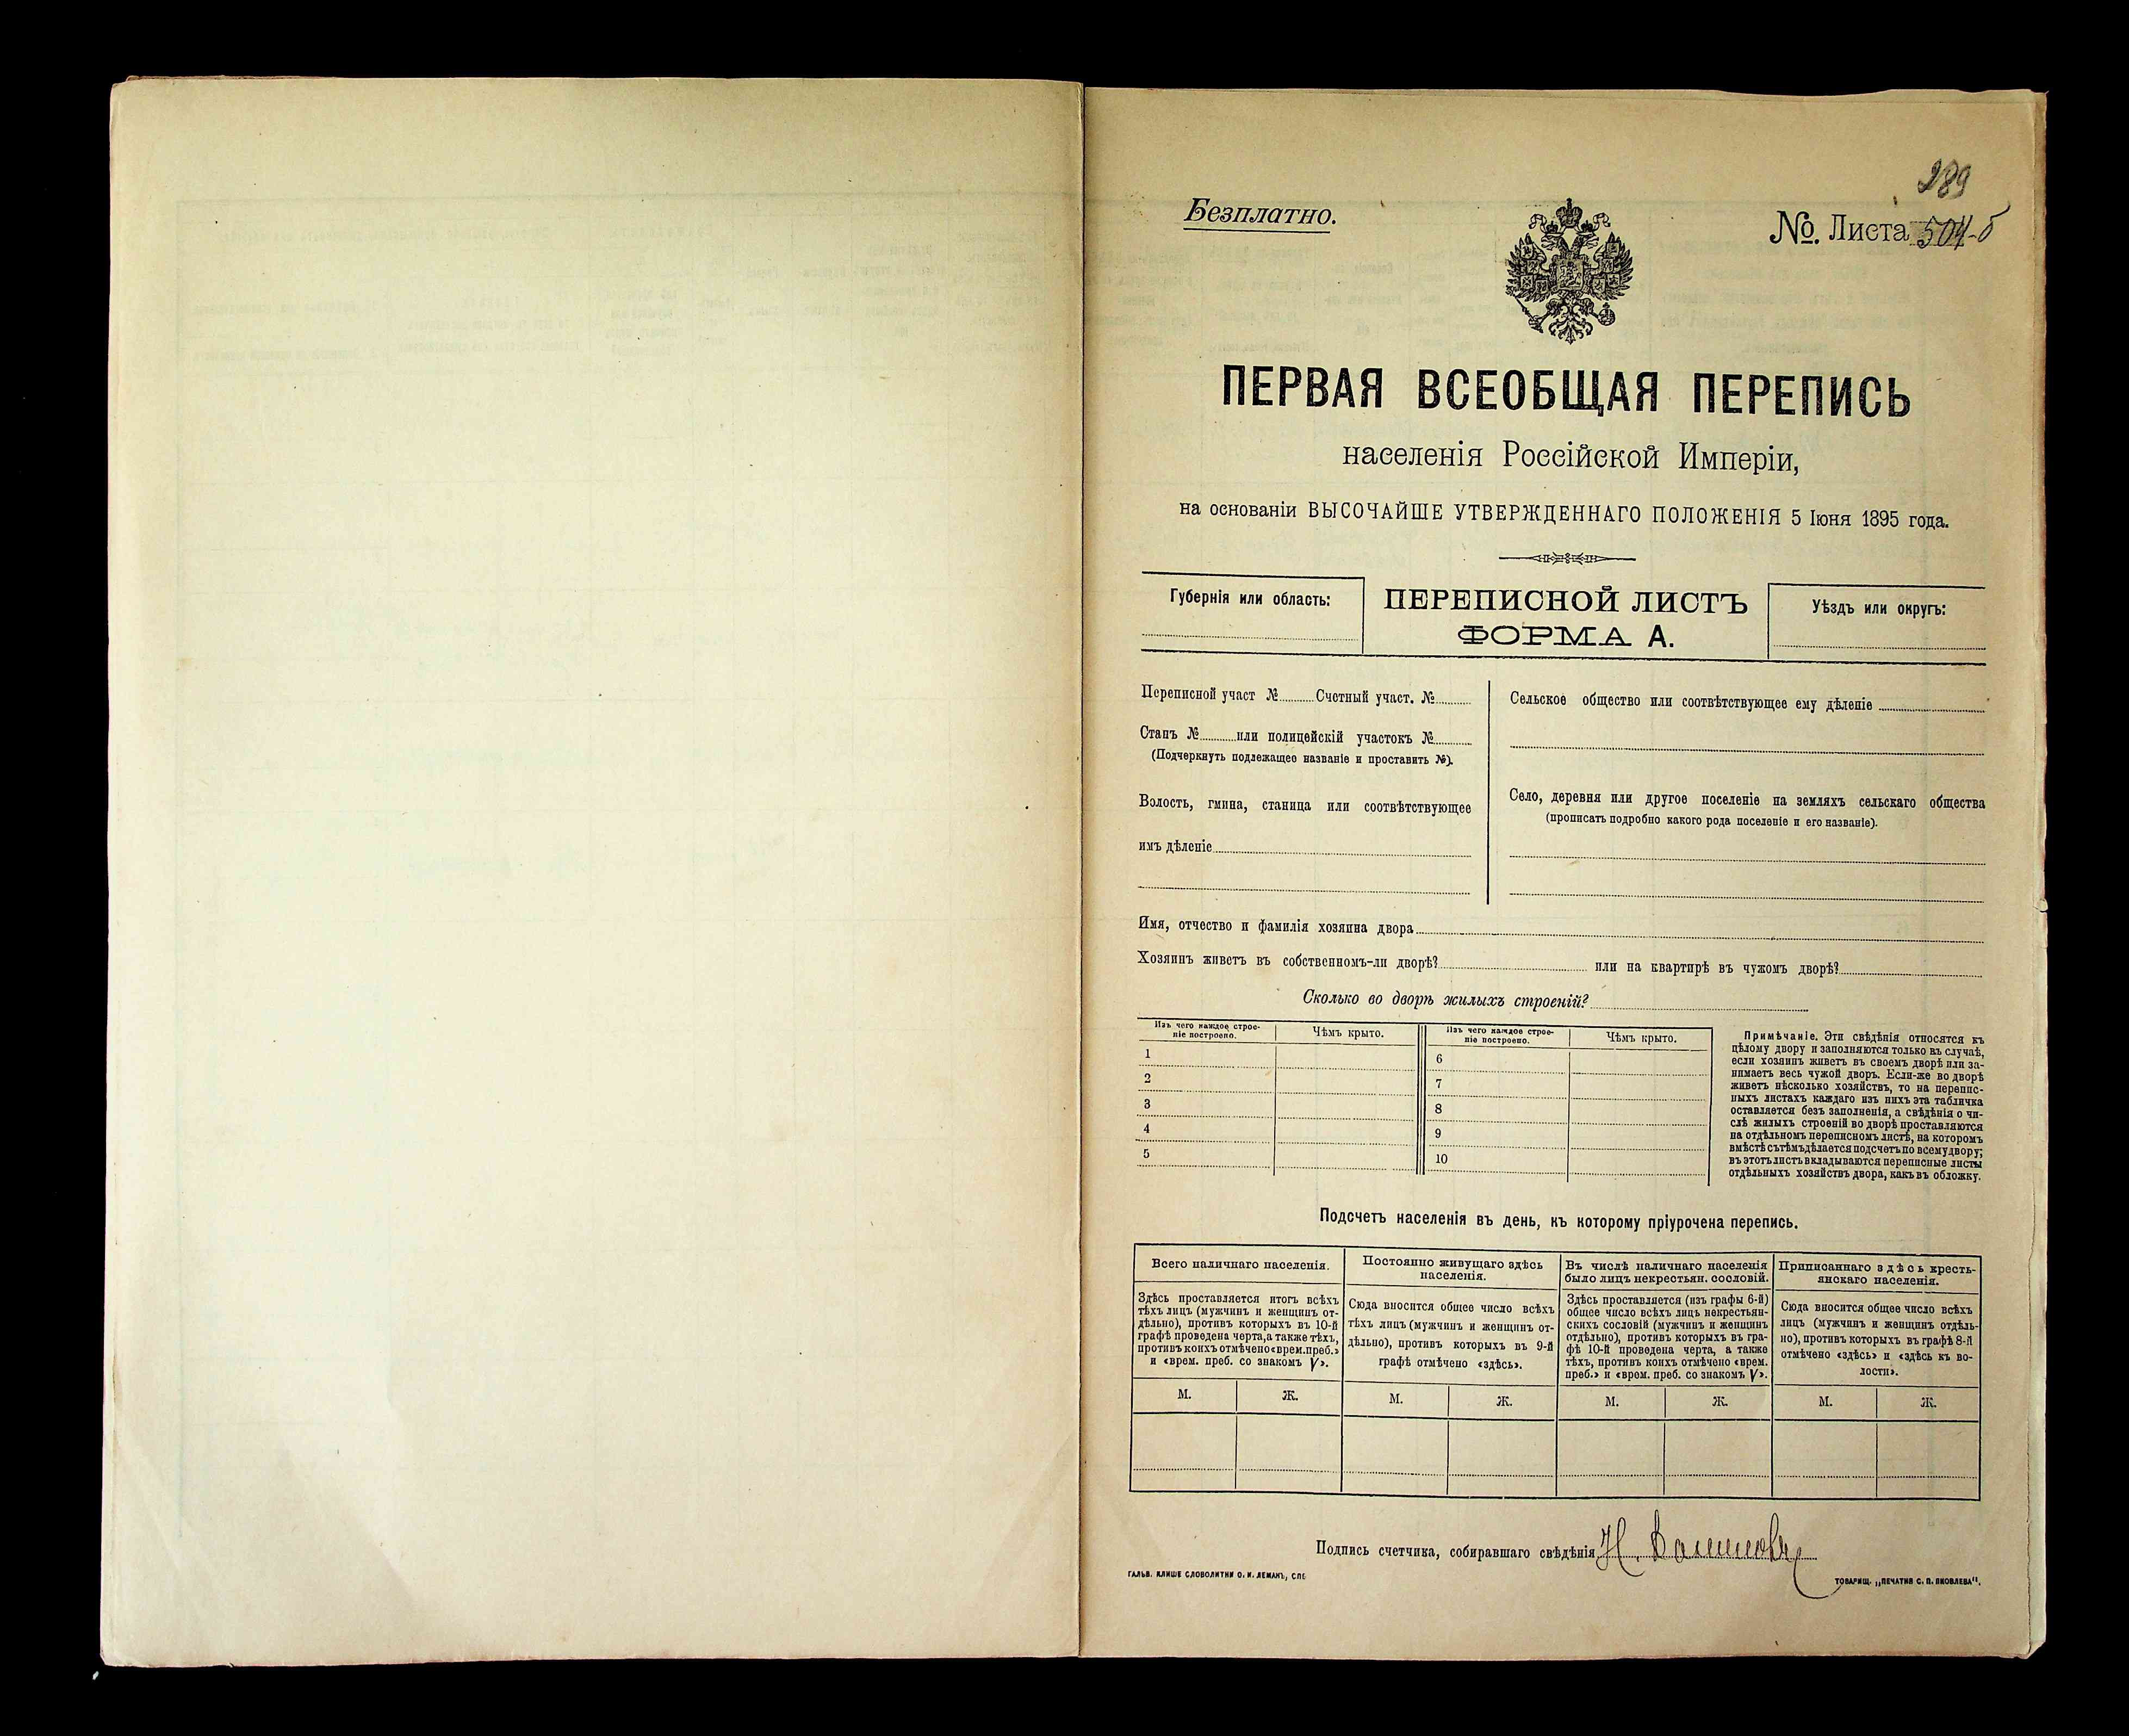 289
Безплатно.
№. Листа 504-б
ПЕРВАЯ ВСЕОБЩАЯ ПЕРЕПИСЬ
населенія Россійской Имперіи,
на основаніи ВЫСОЧАЙШЕ УТВЕРЖДЕННАГО ПОЛОЖЕНІЯ 5 Іюня 1895 года.
Губернія или область:
ПЕРЕПИСНОЙ ЛИСТЪ
ФОРМА А.
Уѣздъ или округъ:
Переписной участ № Счетный участ. №
Станъ № или полицейскій участокъ №
(Подчеркнуть подлежащее названіе и проставить №).
Волость, гмина, станица или соотвѣтствующее
имъ дѣленіе
Сельское общество или соотвѣтствующее ему дѣленіе
Село, деревня или другое поселеніе на земляхъ сельскаго общества
(прописать подробно какого рода поселеніе и его названіе).
Имя, отчество и фамилія хозяина двора
Хозяинъ живетъ въ собственномъ-ли дворѣ? или на квартирѣ въ чужомъ дворѣ?
Сколько во дворѣ жилыхъ строеній?
Изъ чего каждое строе-
ніе построено.
Чѣмъ крыто.
1
2
3
4
5
Изъ чего каждое строе-
ніе построено.
Чѣмъ крыто.
6
7
8
9
10
Примѣчаніе. Эти свѣдѣнія относятся къ
цѣлому двору и заполняются только въ случаѣ,
если хозяинъ живетъ въ своемъ дворѣ или за-
нимаетъ весь чужой дворъ. Если-же во дворѣ
живетъ нѣсколько хозяйствъ, то на перепис-
ныхъ листахъ каждаго изъ нихъ эта табличка
оставляется безъ заполненія, а свѣдѣнія о чи-
слѣ жилыхъ строеній во дворѣ проставляются
на отдѣльномъ переписномъ листѣ, на которомъ
вмѣстѣ съ тѣмъ дѣлается подсчетъ по всему двору;
въ этотъ листъ вкладываются переписные листы
отдѣльныхъ хозяйствъ двора, какъ въ обложку.
Подсчетъ населенія въ день, къ которому пріурочена перепись.
Всего наличнаго населенія.
Здѣсь проставляется итогъ всѣхъ
тѣхъ лицъ (мужчинъ и женщинъ от-
дѣльно), противъ которыхъ въ 10-й
графѣ проведена черта, а также тѣхъ,
противъ коихъ отмѣчено «врем. преб.»
и «врем. преб. со знакомъ V».
М. Ж.
Постоянно живущаго здѣсь
населенія.
Сюда вносится общее число всѣхъ
тѣхъ лицъ (мужчинъ и женщинъ от-
дѣльно), противъ которыхъ въ 9-й
графѣ отмѣчено «здѣсь».
М. Ж.
Въ числѣ наличнаго населенія
было лицъ некрестьян. сословій.
Здѣсь проставляется (изъ графы 6-й)
общее число всѣхъ лицъ некрестьян-
скихъ сословій (мужчинъ и женщинъ
отдѣльно), противъ которыхъ въ гра-
фѣ 10-й проведена черта, а также
тѣхъ, противъ коихъ отмѣчено «врем.
преб.» и «врем. преб. со знакомъ V».
М. Ж.
Приписаннаго здѣсь кресть-
янскаго населенія.
Сюда вносится общее число всѣхъ
лицъ (мужчинъ и женщинъ отдѣль-
но), противъ которыхъ въ графѣ 8-й
отмѣчено «здѣсь» и «здѣсь къ во-
лости».
М. Ж.
Подпись счетчика, собиравшаго свѣдѣнія Н.
ГАЛЬВ. КЛИШЕ СЛОВОЛИТНИ О. И. ЛЕМАНЪ, СПБ
ТОВАРИЩ. „ПЕЧАТНЯ С. П. ЯКОВЛЕВА“.